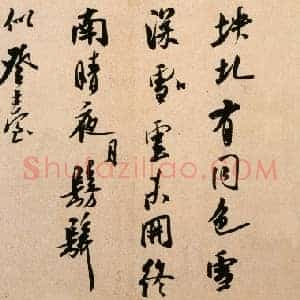 坱圠有同色雪
深雪雲未開終
南晴夜月髣髴
似登臺
Shufaziliao.COM